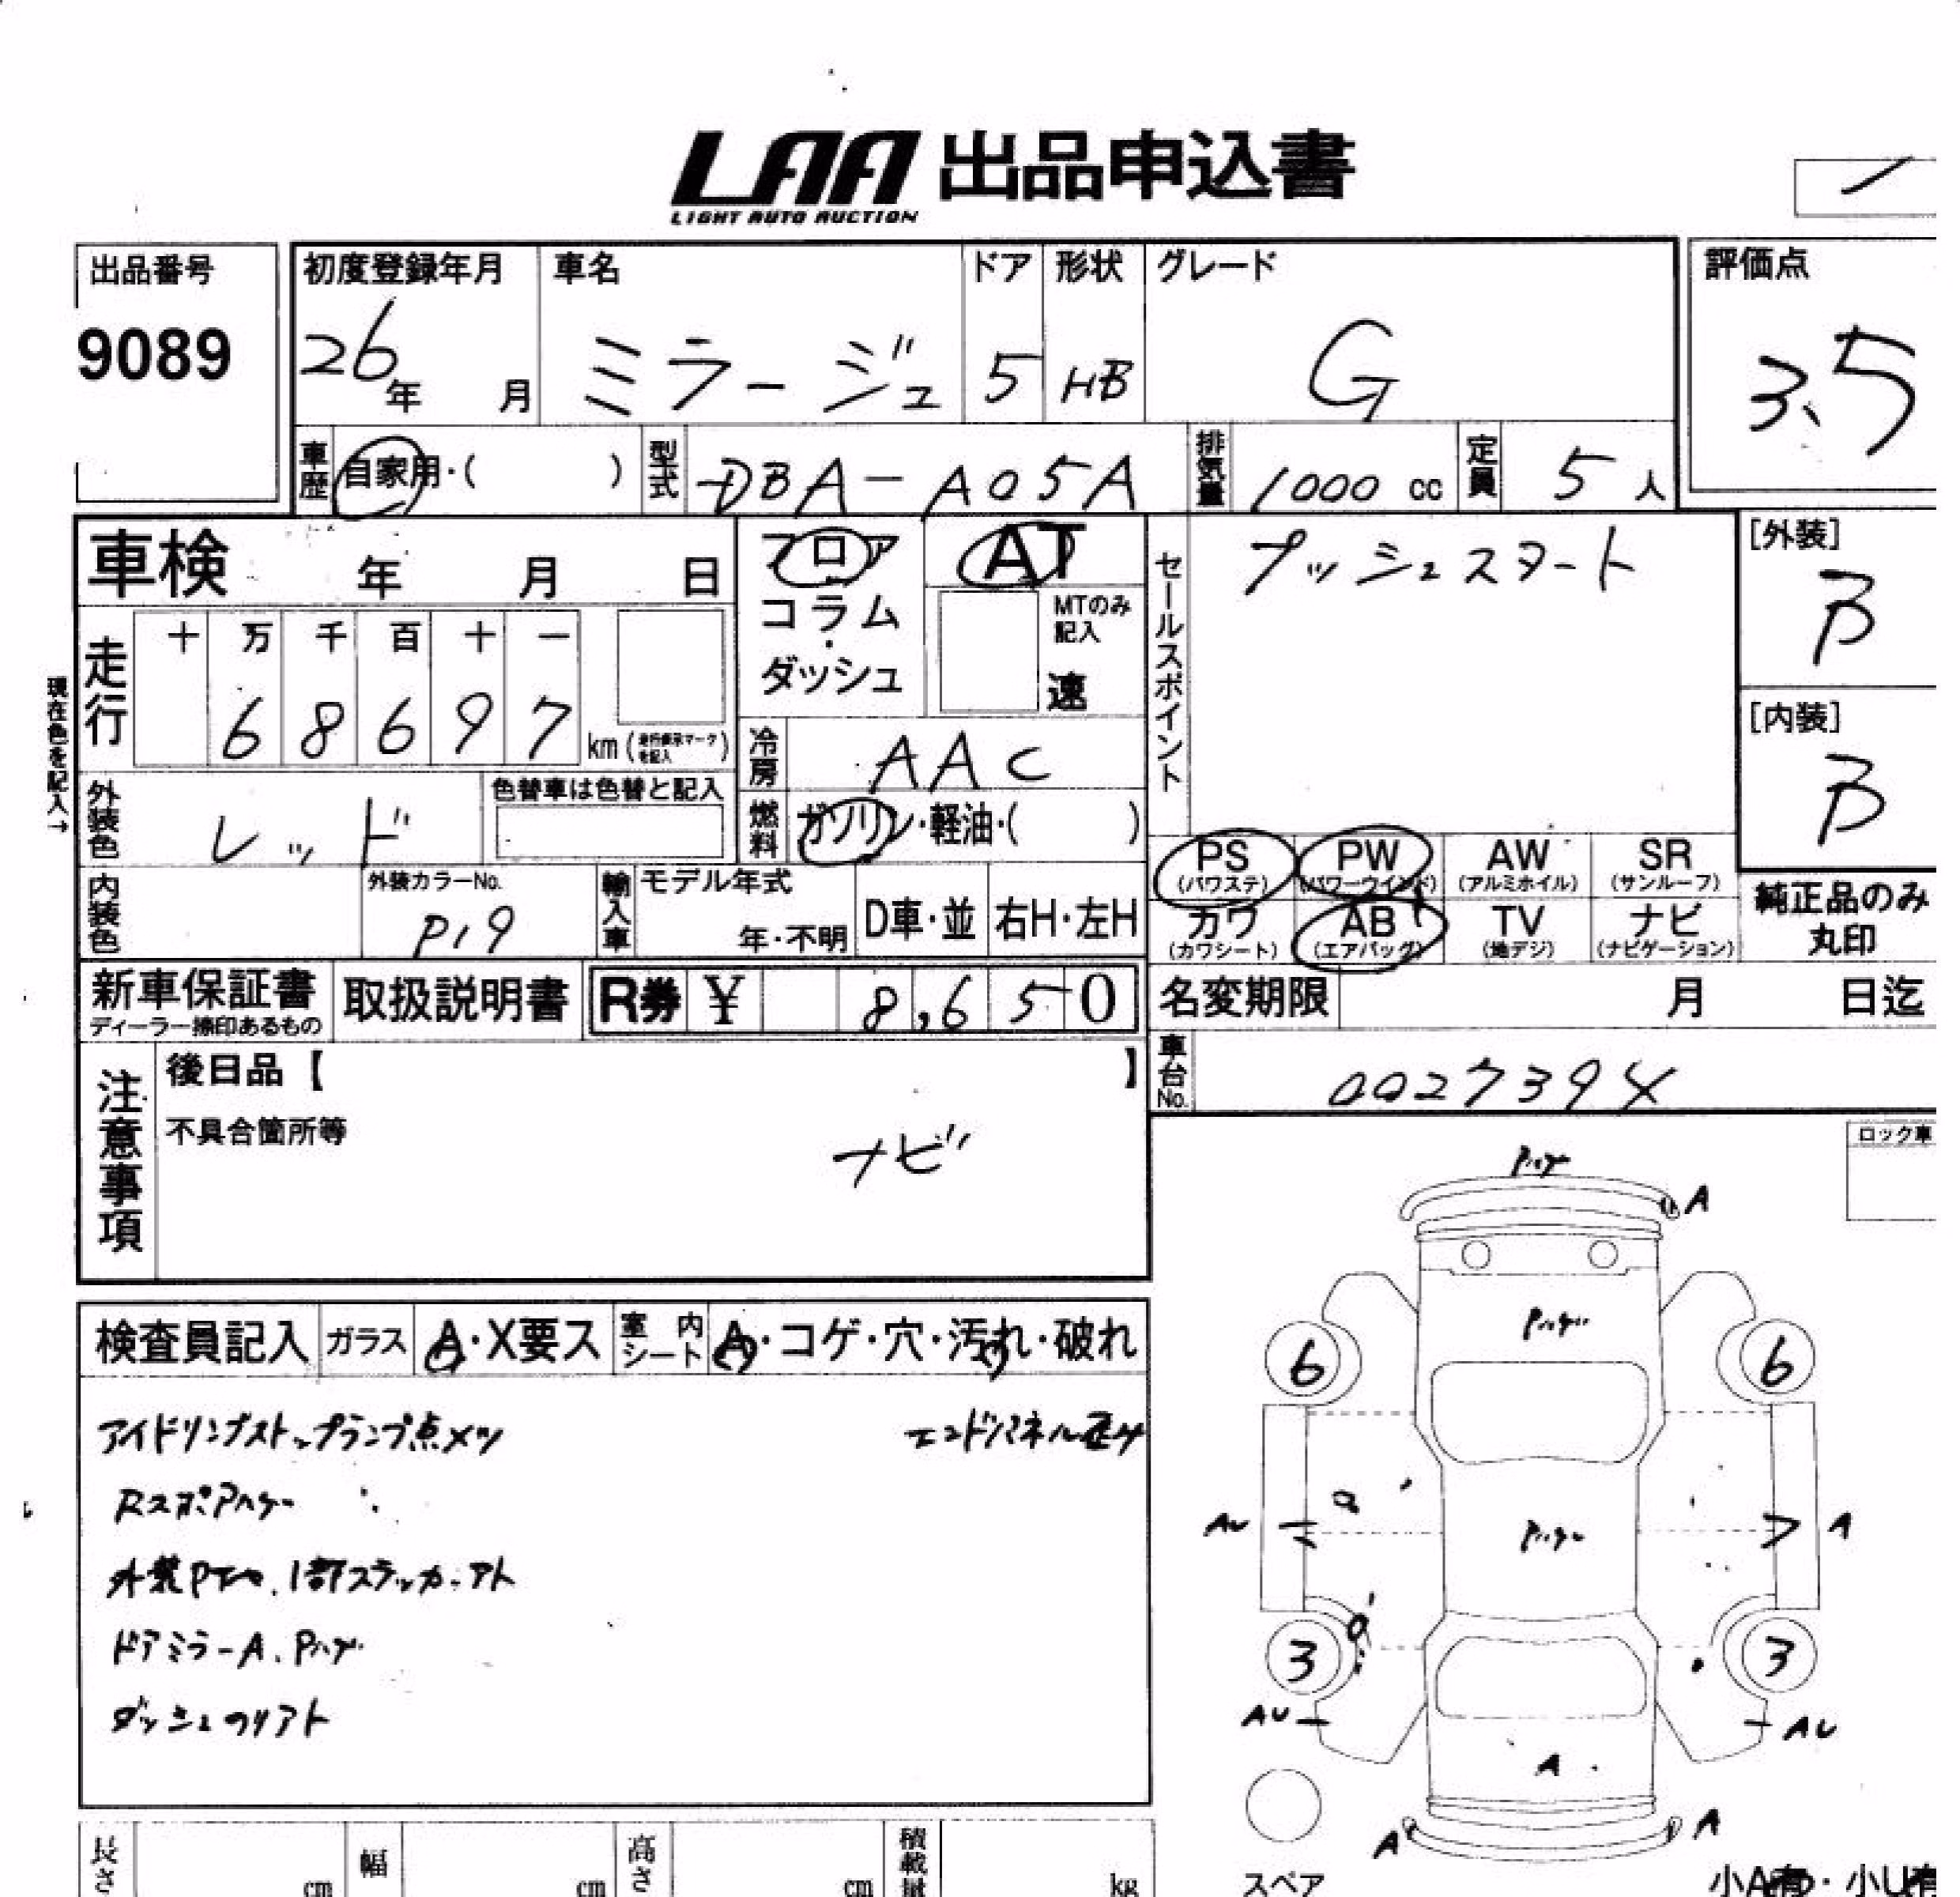 LAA 出品申込書
LIGHT AUTO AUCTION
出品番号
9089
初度登録年月
26年 月
車名
ミラージュ
ドア
5
形状
HB
グレード
G
評価点
3.5
車歴 自家用・( )
型式 DBA-A05A
排気量 1000 cc
定員 5 人
車検 年 月 日
フロア
コラム
・
ダッシュ
AT
MTのみ
記入
速
セールスポイント
プッシュスタート
[外装]
B
[内装]
B
現在色を記入→
走行
十 万 千 百 十 一
6 8 6 9 7 km
(走行表示マークを記入)
冷房 AAC
燃料 ガソリン・軽油・( )
外装色 レッド
色替車は色替と記入
内装色
外装カラーNo.
P19
輸入車
モデル年式
年・不明
D車・並
右H・左H
PS
(パワステ)
PW
(パワーウインド)
AW
(アルミホイル)
SR
(サンルーフ)
カワ
(カワシート)
AB
(エアバッグ)
TV
(地デジ)
ナビ
(ナビゲーション)
純正品のみ
丸印
新車保証書
ディーラー捺印あるもの
取扱説明書
R券 ¥ 8,650
名変期限 月 日迄
車台No. 002739X
注意事項
後日品【 】
不具合箇所等
ナビ
ロック車
検査員記入
ガラス A・X要ス
室内シート A・コゲ・穴・汚れ・破れ
アイドリングストップランプ点メツ
エンドパネル歪み
Rスポアハゲ
外装Pアセ、1部ステッカーアト
ドアミラーA、Pハゲ
ダッシュノリアト
Pハゲ
A
Pハゲ
6 6
AU A
Pハゲ
3 3
AU AU
A
A A
スペア
小A有・小U有
長さ cm
幅 cm
高さ cm
積載量 kg